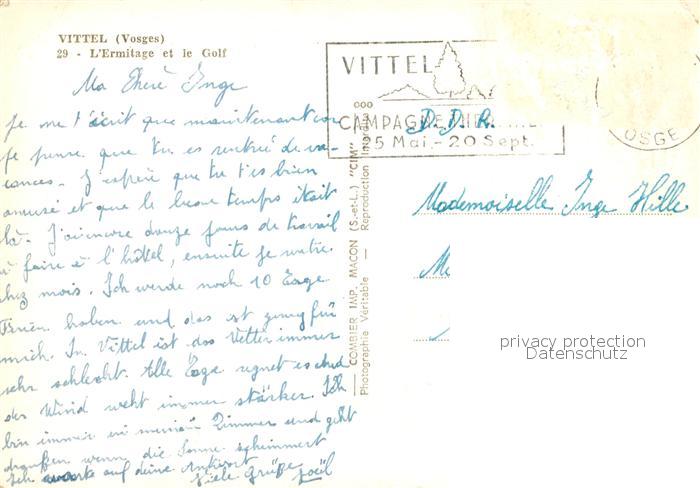 VITTEL (Vosges)
29 - L'Ermitage et le Golf
Ma Cherè Inge
Je ne t'écrit que maintenant car
je pense que tu es rentrée de va-
cances. J'espère que tu t'es bien
amusé et que le beau temps était
là. J'ai encore douze jours de travail
à faire à l'hôtel, ensuite je rentre
chez mois. Ich werde noch 10 Tage
Ferien haben und das ist genug für
mich. In Vittel ist das Wetter immer
sehr schlecht. Alle Tage regnet es und
der Wind weht immer stärker. Ich
bin immer in meinem Zimmer und geht
draußen wenn die Sonne scheimmert
Ich warte auf deine Antwort
Viele Grüße Joël
COMBIER IMP. MACON (S.-et-L.) "CIM"
Photographie Véritable - Reproduction
VITTEL
CAMPAGNE
5 Mai - 20 Sept.
OSGE
D. D. R.
Mademoiselle Inge Hille
privacy protection
Datenschutz